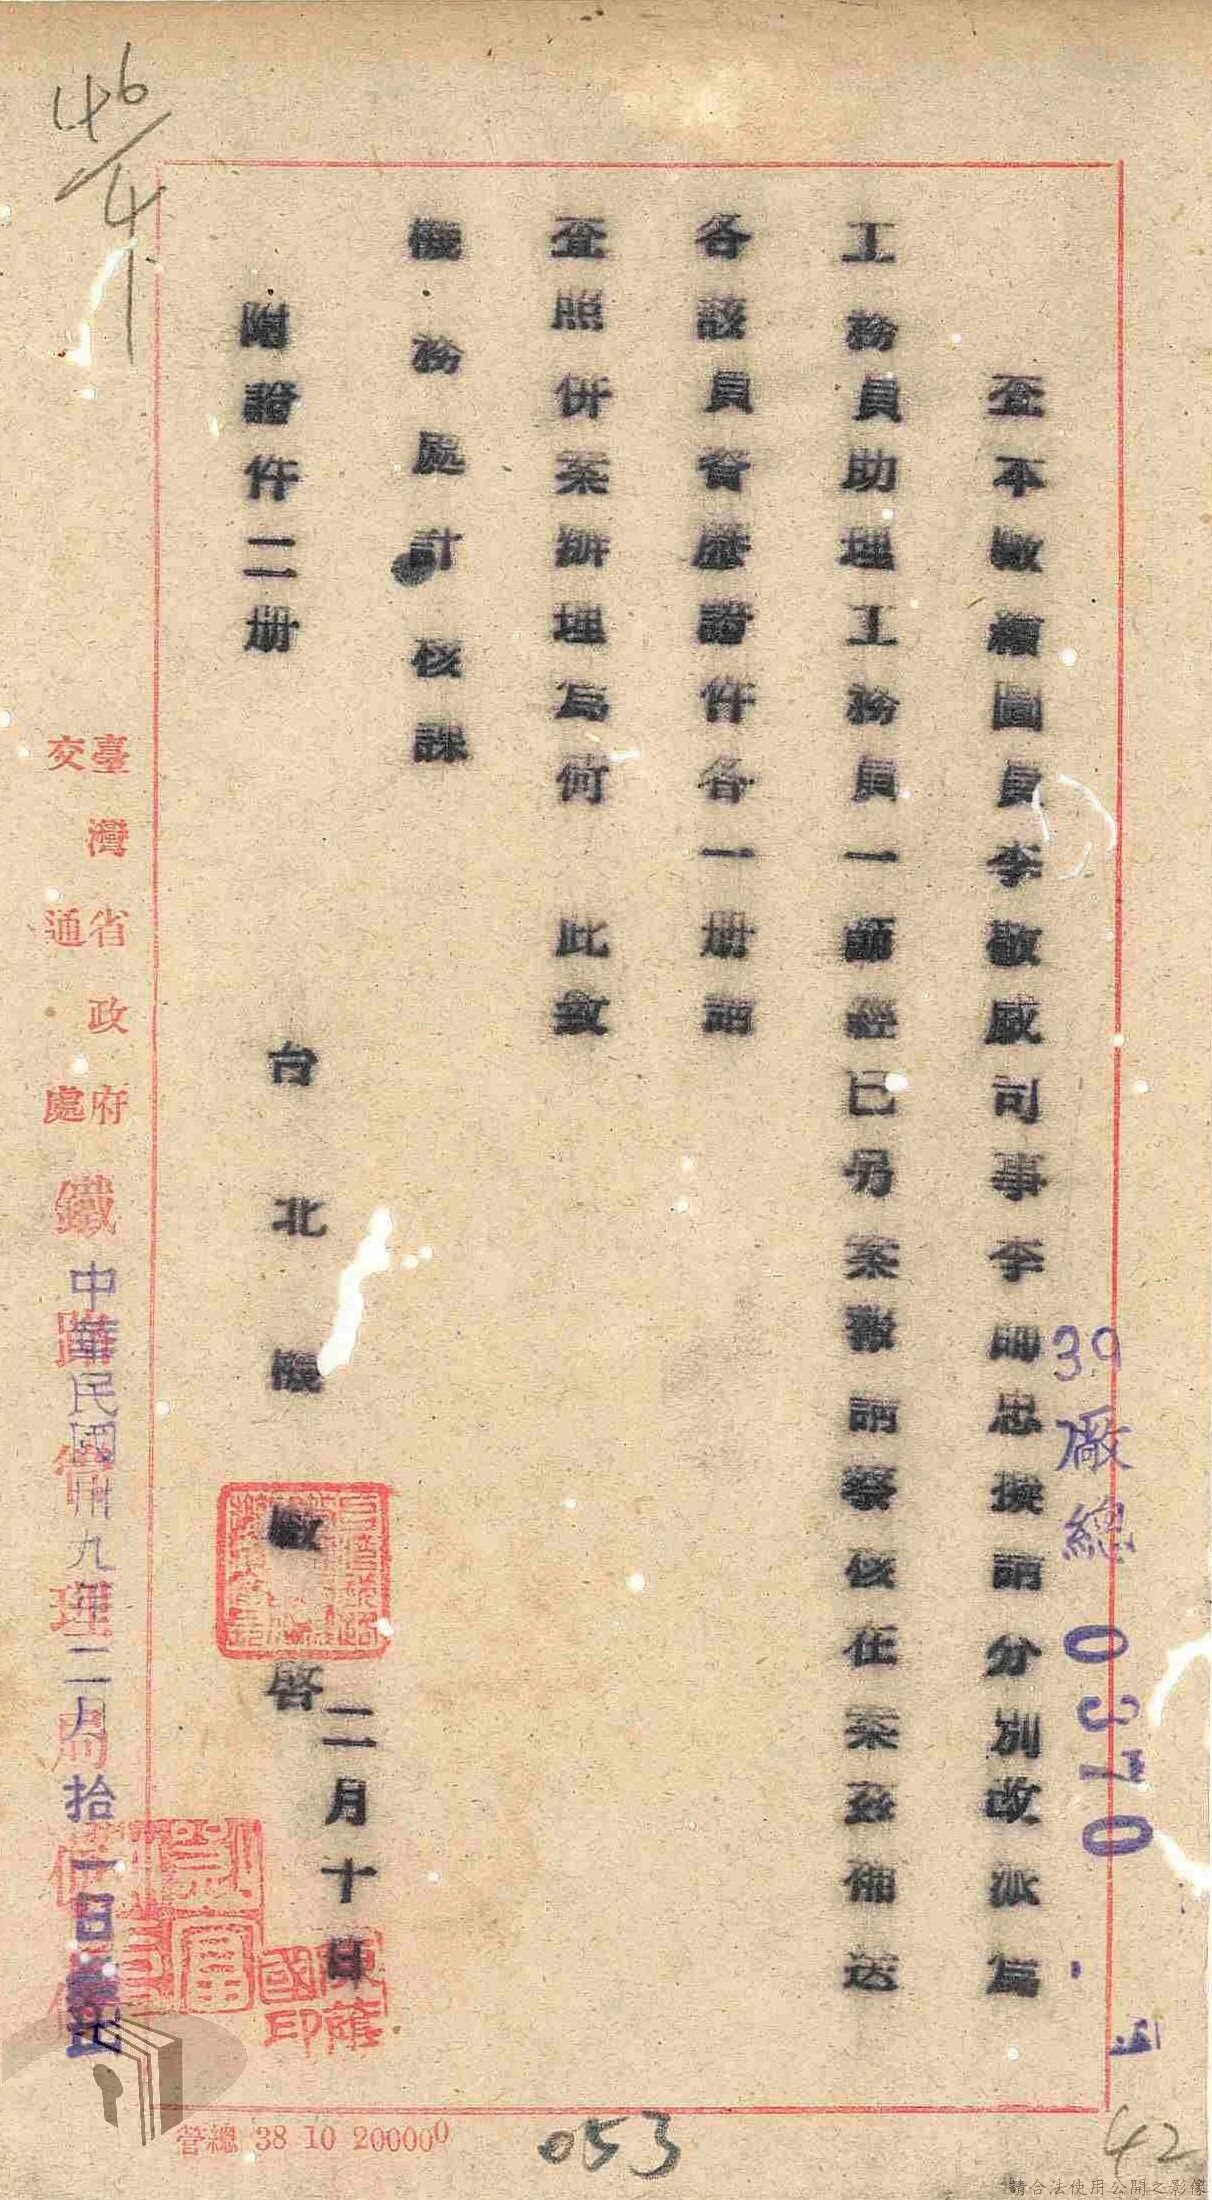 39 廠總 0370
查本敝繪圖員李敬威司事李師忠擬請分別改派為
工務員助理工務員一節經已另案報請察核在案茲備送
各該員資歷證件各一册請
查照併案辦理為何 此致
機務處計核課
附證件二册
台北機廠啓
二月十日
臺灣省政府
交通處
鐵路管理局
中華民國卅九年二月拾一日
管總 38 10 200000
053
42
46/4
請合法使用公開之影像